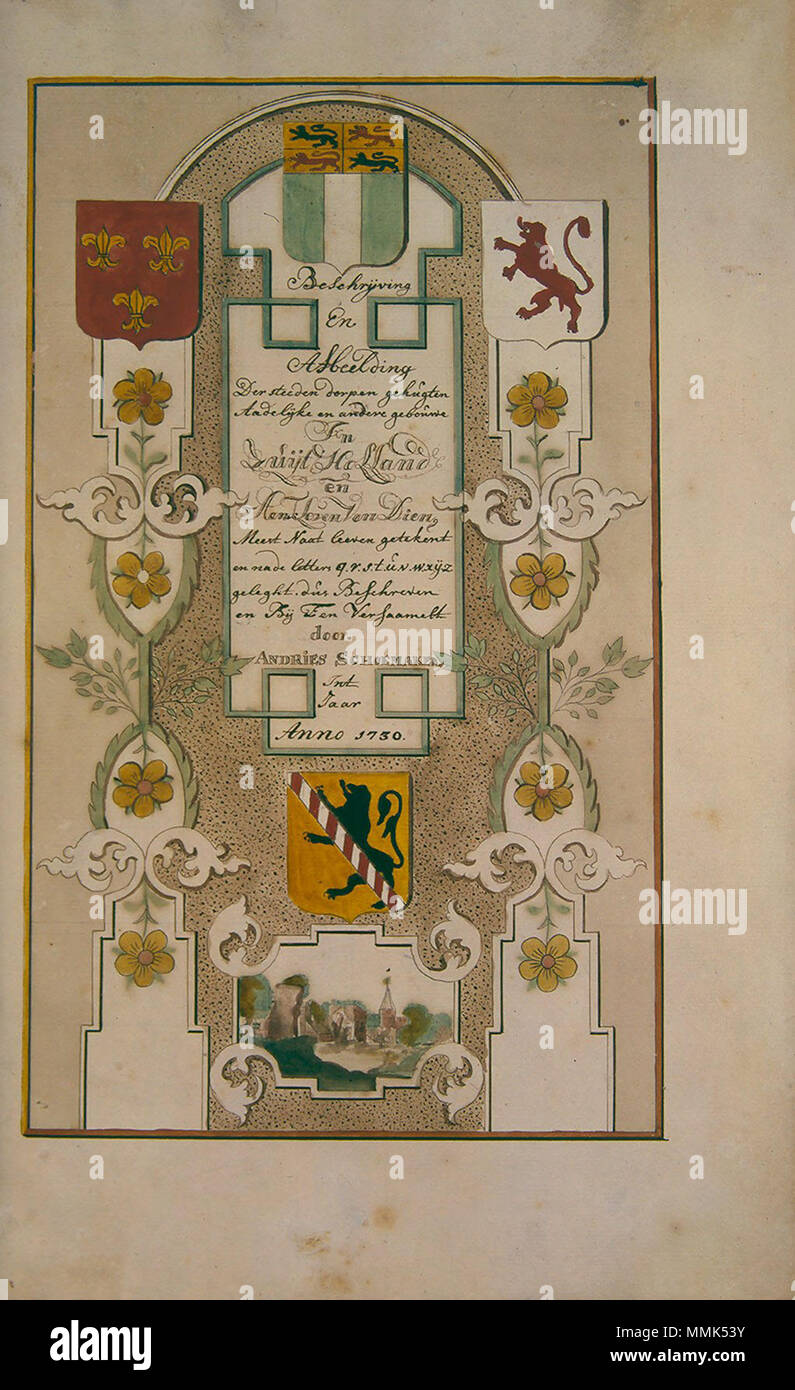 Beschrÿving
En
Afbeelding
Der steeden dorpen gehügten
Aadelÿke en andere geboüwe
In
Zuÿt Holland
en
Aen Den Van Dien,
Meest Naat leeven getekent
en na de letters q.r.s.t.ü.v.w.x.ÿ.z
geleght. düs Beschreven
en Bÿ Een Versaamelt
door
ANDRIES SCHOEMAKER,
Int
Jaar
Anno 1730.
alamy
Image ID: MMK53Y
www.alamy.com